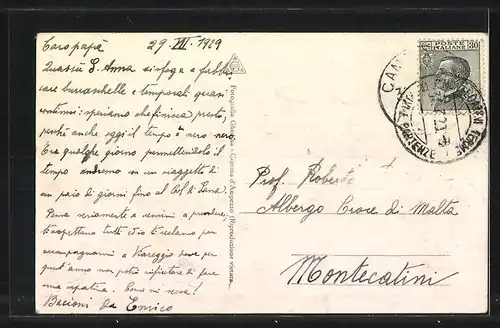 29. VII. 1929
Caro papà
Quassù S. Anna si sfoga a fabbri
care burraschelle e temporali quasi
continui: speriamo che finisca presto,
perchè anche oggi il tempo è nero nero.
Fra qualche giorno permettendolo il
tempo andremo in un viaggetto di
un paio di giorni fino al
Pensa seriamente a venirci a prendere,
ti aspettano tutti
accompagnarmi a Viareggio dove per
quest'anno non potrò rifiutare di fare
una capatina. Come mi secca!
Bacioni da Enrico
Fotografia Ghedina - Cortina d'Ampezzo (Riproduzione vietata)
POSTE ITALIANE 30
Prof. Roberto
Albergo Croce di Malta
Montecatini